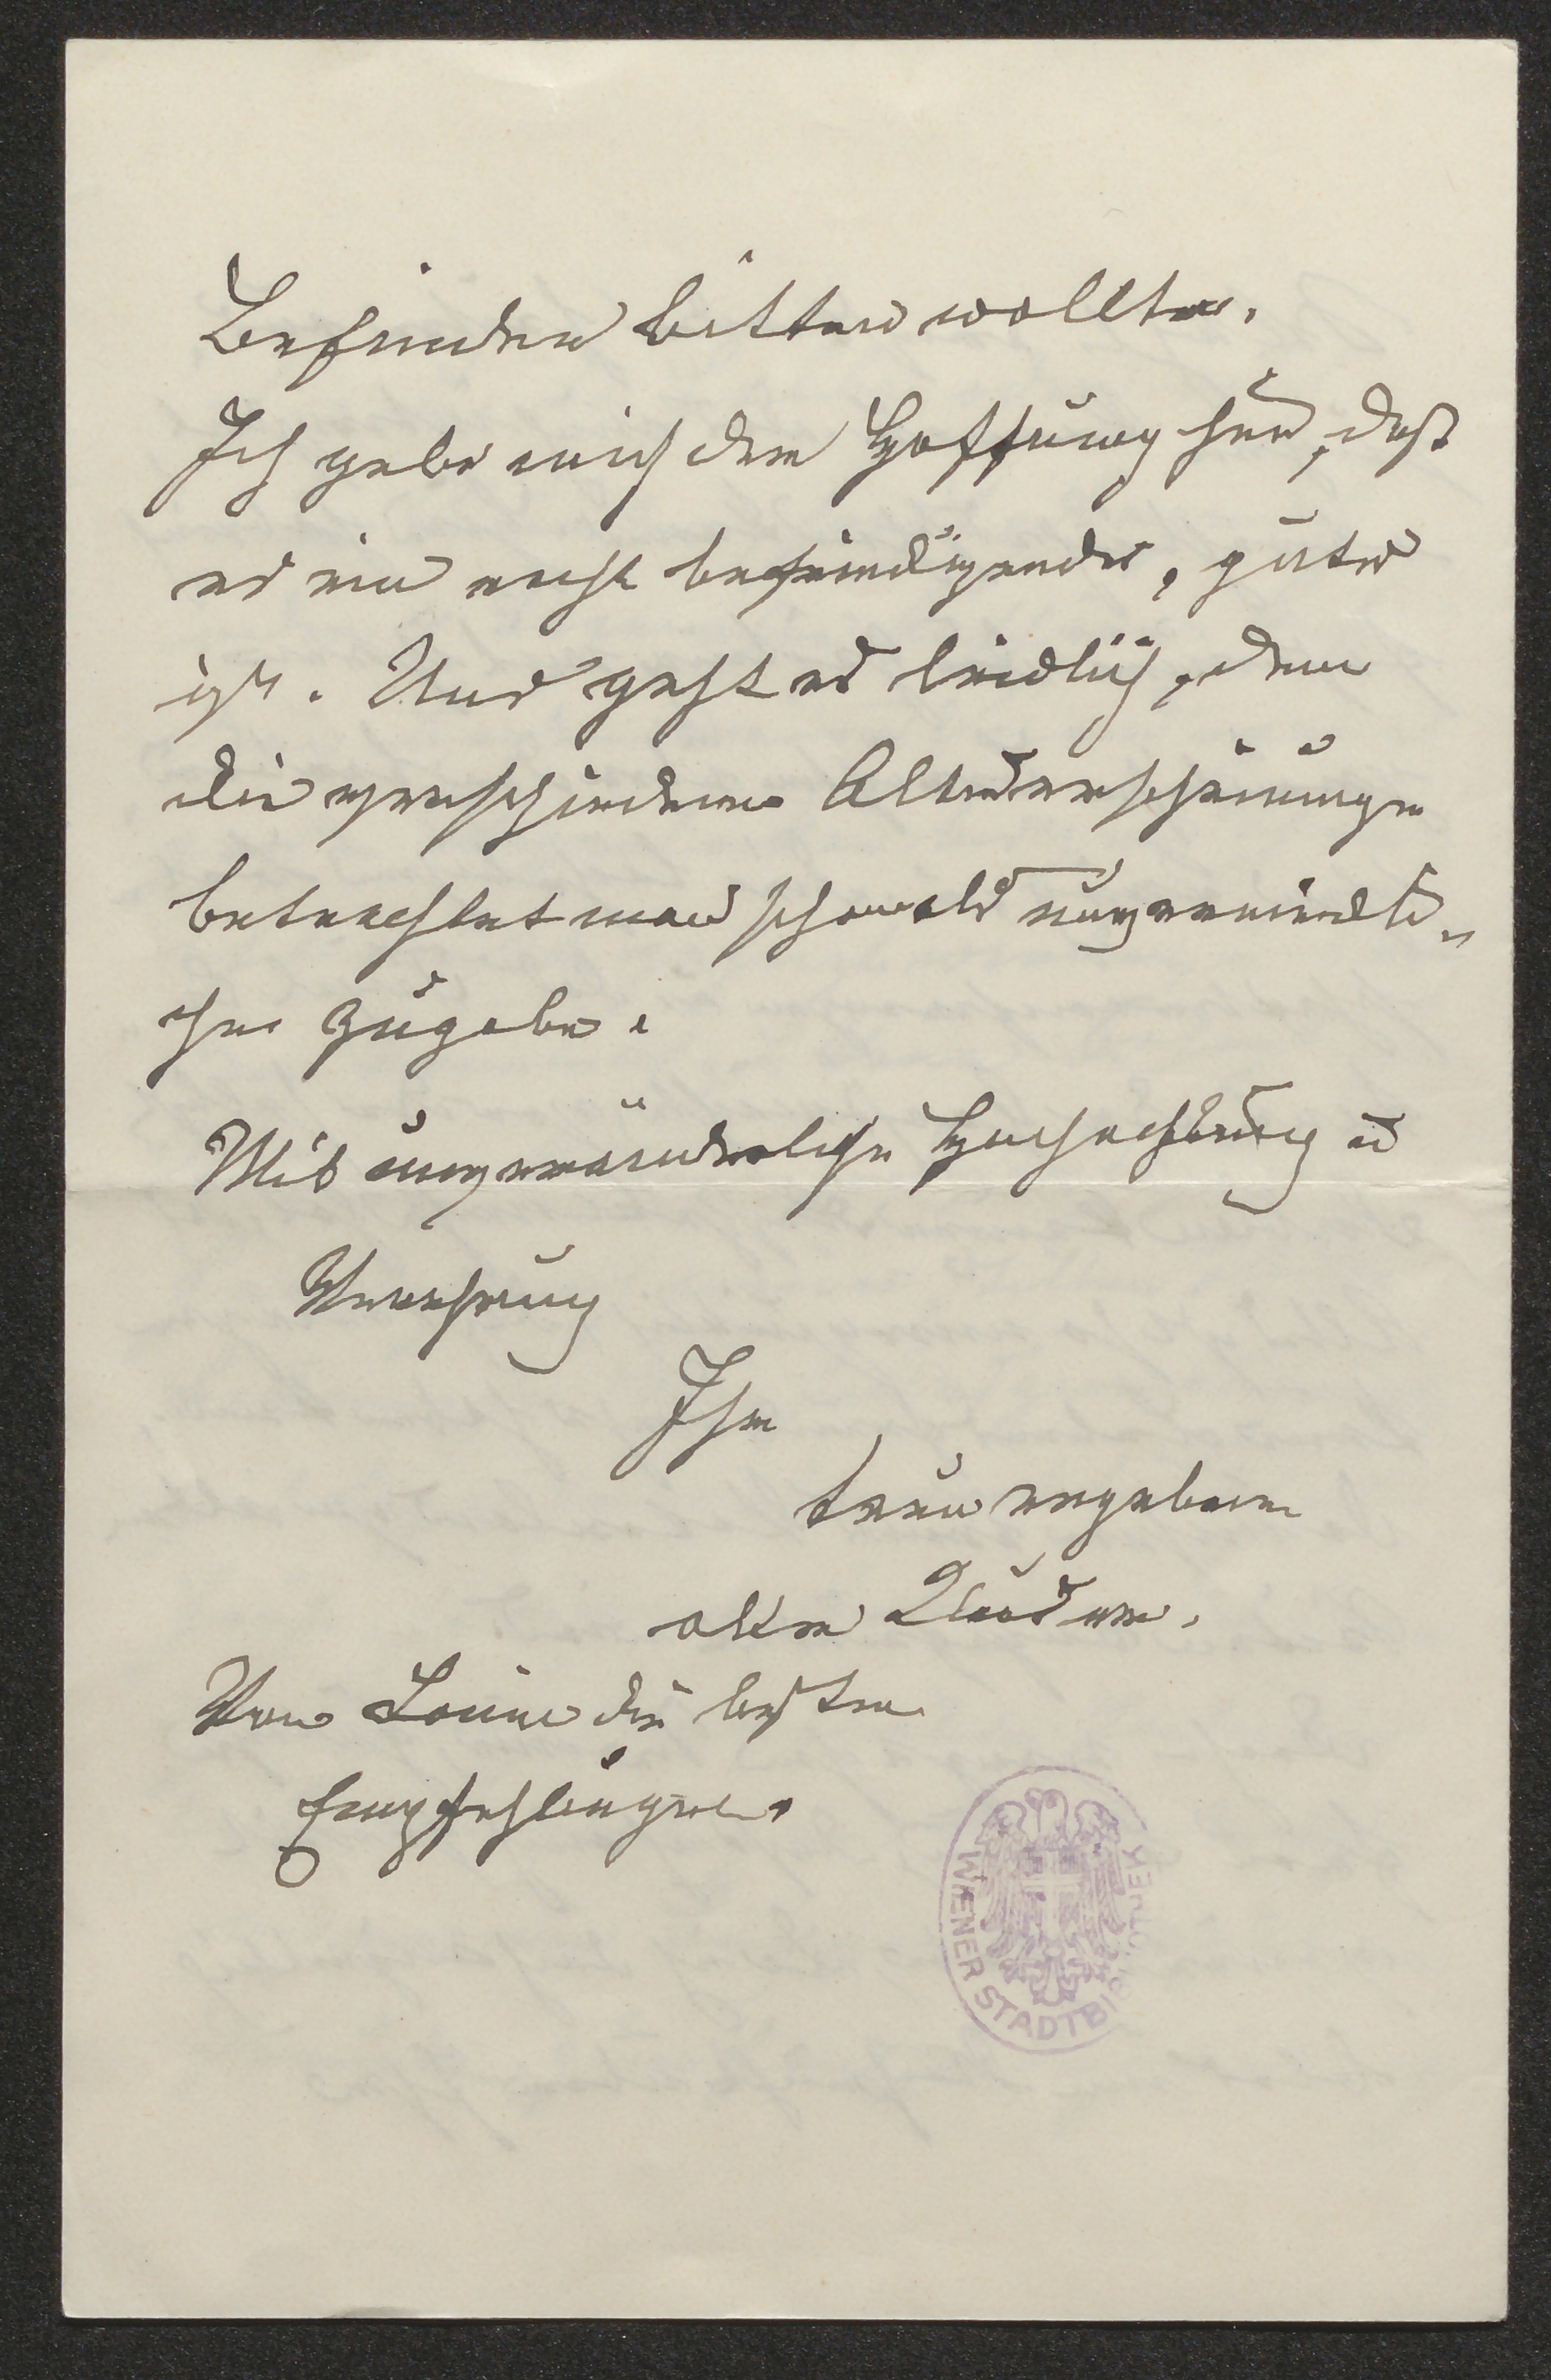 Befinden bitten wollte.
Ich gebe mich der Hoffnung hin, daß
es ein recht befriedigendes, gutes
ist. Uns geht es leidlich, denn
die verschiedenen Alterserscheinungen
betrachtet man schon als unvermeidli-
che Zugabe.
Mit unveränderlicher Hochachtung u
Verehrung
Ihr
treu ergebener
alter
Von Louise die besten
Empfehlungen.
WIENER STADTBIBLIOTHEK